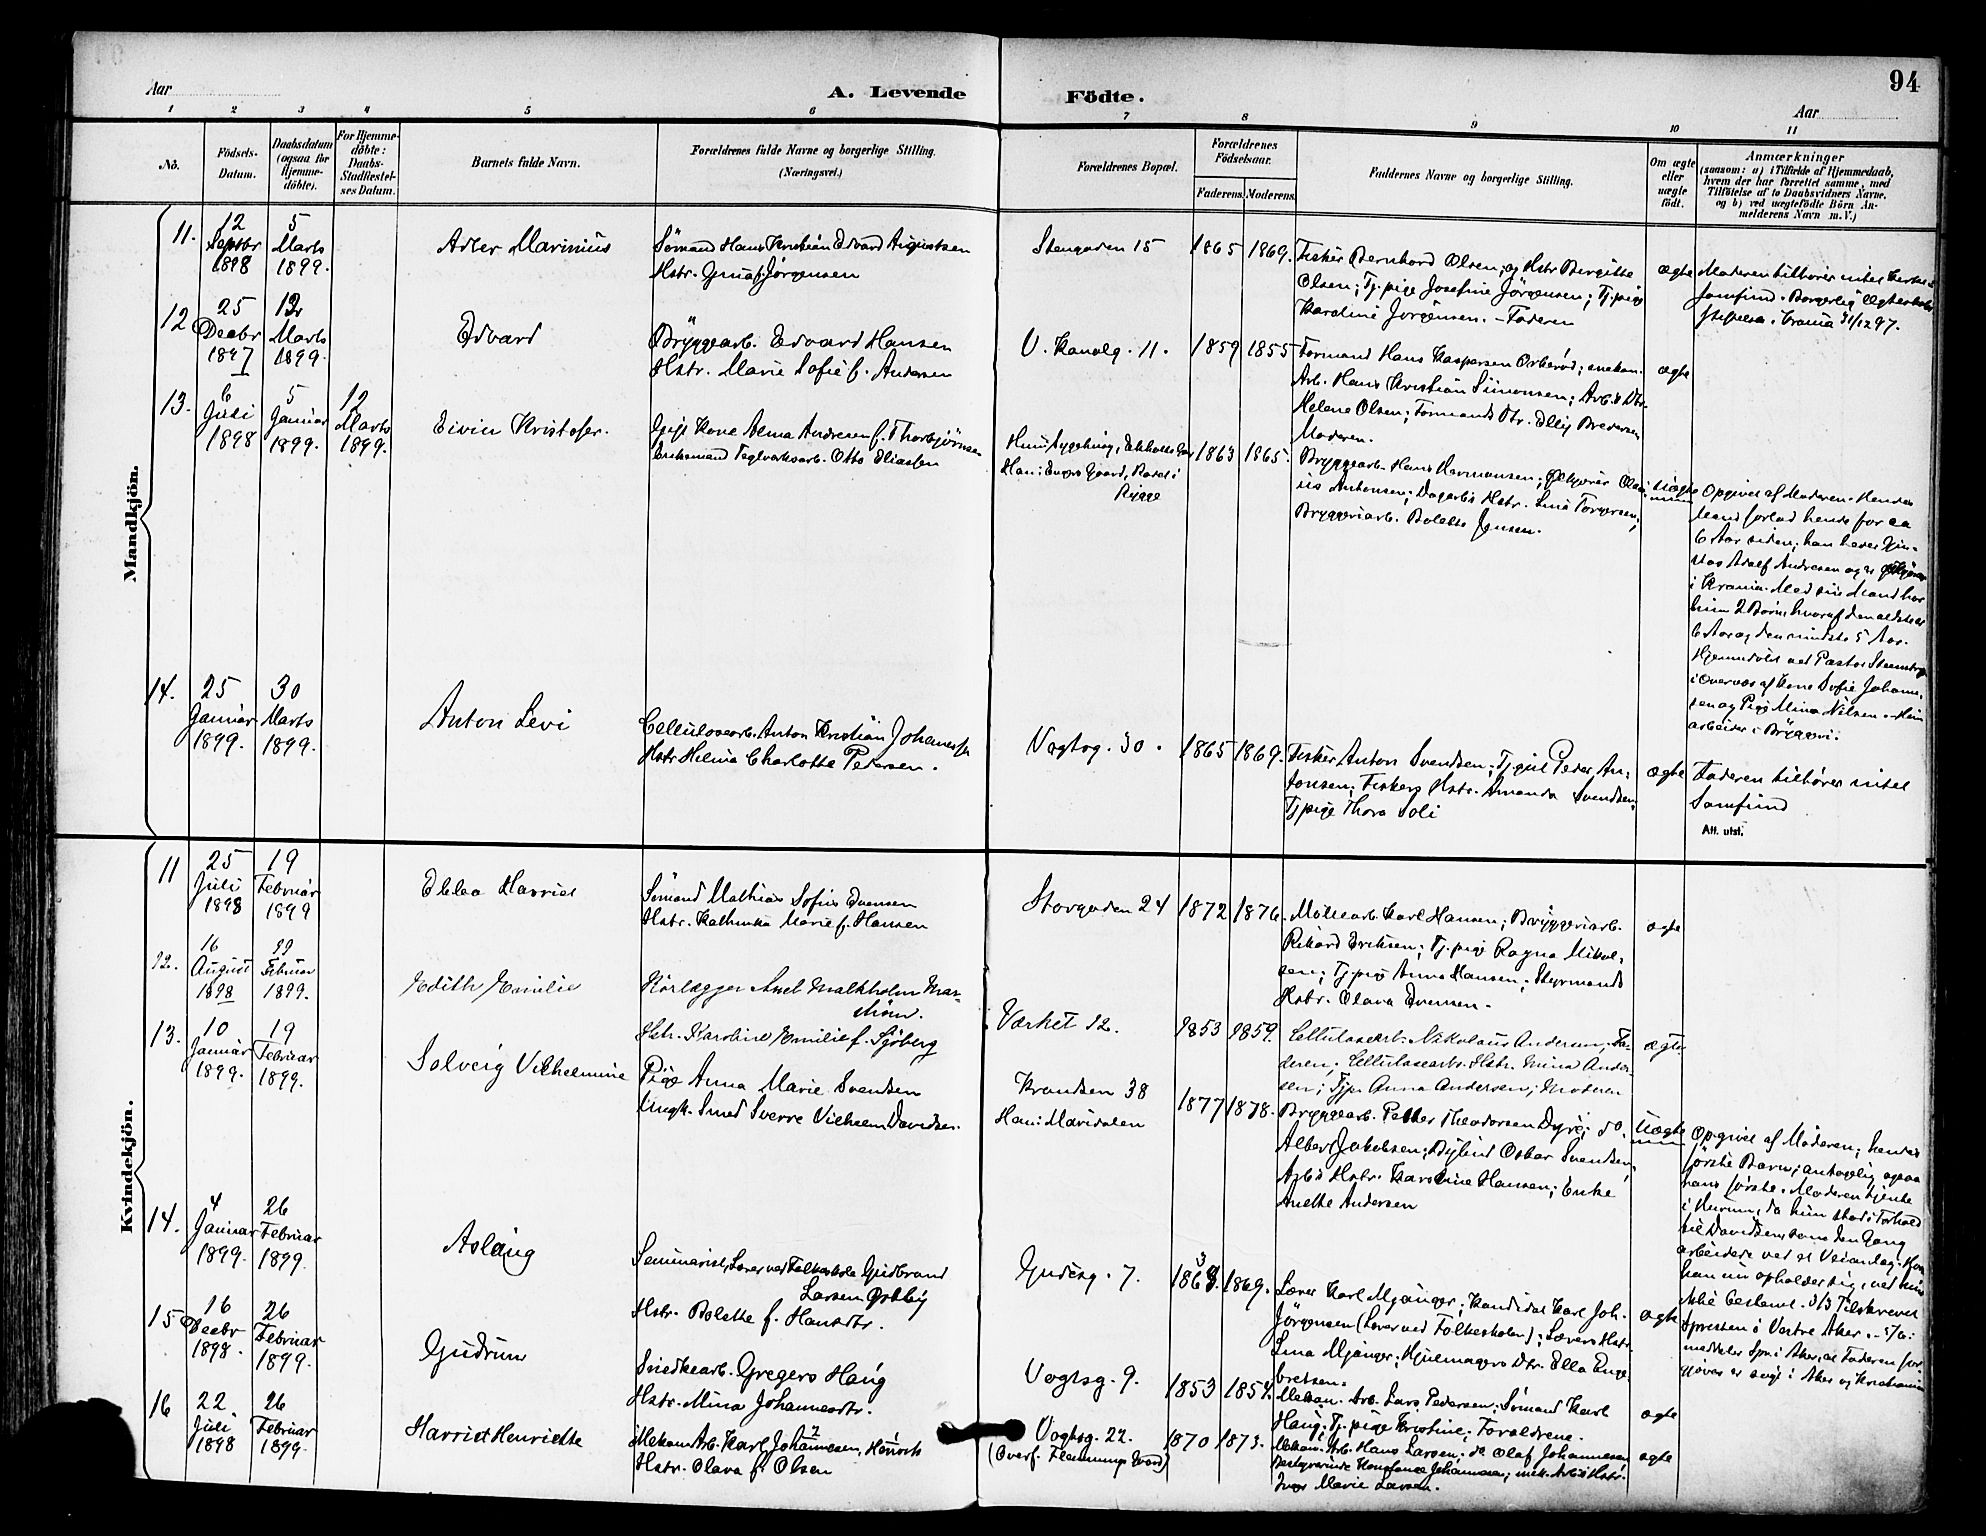 94
Aar
A. Levende
Födte.
Aar
1 2 3 4 5 6 7 8 9 10 11
No.
Födsels-Datum.
Daabsdatum (ogsaa for Hjemme-döbte).
For Hjemme-döbte: Daabs-Stadfæstel-ses Datum.
Barnets fulde Navn.
Forældrenes fulde Navne og borgerlige Stilling.
(Næringsvei.)
Forældrenes Bopæl.
Forældrenes Födselsaar.
Faderens.
Moderens.
Faddernes Navne og borgerlige Stilling.
Om ægte eller uægte födt.
Anmærkninger
(saasom: a) i Tilfælde af Hjemmedaab,
hvem der har forrettet samme, med
Tilföielse af to Daabsvidners Navne,
og b) ved uægtefödte Börn An-
melderens Navn m. V.)
Mandkjön.
11.
12 Septbr 1898
5 Marts 1899.
Adler Marinius
Sömand Hans Kristian Edvard Augustsen
Hstr. f. Jørgensen
Stengaden 15
1865
1869.
Fisker Bernhard Olsen, og Hstr Birgitte
Olsen; Tj.pige Josefine Jörgensen; Tj.pige
Karoline Jörgensen. - Faderen
ægte
Moderen tilhörer intet Kirke-
samfund. Borgerlig Ægteskabs
stiftelse i Crania 31/12 97.
12
25 Decbr 1897
12 Marts 1899.
Edvard
Bryggearb. Edvard Hansen
Hstr. Marie Sofie f. Andersen
V. Kanalg. 11.
1859
1855
Formand Hans Kaspersen; mekan.
Arb. Hans Kristian Simonsen; Arb.s Dtr.
Helene Olsen; Formands Dtr. Elly Bredersen
Moderen.
ægte
13.
6 Juli 1898
5 Januar 1899.
12 Marts 1899.
Eivin Kristofer.
Gift Kone Alma Andresen f. Thorbjörnsen
Enkemand Teglverksarb. Otto Eliassen
Han: Engers Gaard, i
Rygge
1863
1865.
Bryggearb. Hans Hermansen;
Antonsen; Dagarb.s Hstr. Lina Torgersen;
Bryggeriarb. Bolette Jensen.
Uægte
Opgivet af Moderen. Hendes
Mand forlod hende for ca
6 Aar siden; han heder
Adolf Andresen og er
i Krania. Med sin Mand har
hun 2 Börn, hvoraf den ældste er
6 Aar og den mindste 5 Aar.
Hjemmedöbt ved Pastor
i Overvær af Kone Sofie Johan-
sen og Pige Mina Nilsen. Hun
arbeider i Bryggeri.
14.
25 Januar 1899.
30 Marts 1899.
Anton Levi
Cellulosearb. Anton Kristian Johannesen
Hstr Hilma Charlotte Pedersen.
Vogtsg. 30.
1865
1869.
Fisker Anton Svendsen; Tj.gut Peder An-
tonsen; Fiskers Hstr. Amanda Svendsen;
Tj pige Thora Soli
ægte
Faderen tilhörer intet
Samfund
Att. utst.
Kvindekjön.
11
25 Juli 1898
19 Februar 1899
Ebba Harriet
Sömand Mathias Sofus Evensen
Hstr. Kathinka Marie f. Hansen
Storgaden 24
1872
1876.
Möllearb. Karl Hansen; Bryggeriarb.
Rikard Eriksen; Tj.pige Ragna Mikal-
sen; Tj pige Anna Hansen; Styrmands
Hstr. Olava Evensen.
ægte
12.
16 August 1898
19 Februar 1899.
Edith Emilie
Rörlægger Axel Malkholm Mar-
ström.
Hstr. Karoline Emilie f. Sjöberg
Værket 12.
1853
1859.
Cellulosearb. Nikolaus Andersen; Fa-
deren; Cellulosearb.s Hstr. Mina Ander-
sen; Tjp. Anna Andersen; Moderen
ægte
13.
10 Januar 1899.
19 Februar 1899.
Solveig Vilhelmine
Pige Anna Marie Svendsen
Ungk. Smed Sverre Vilhelm Davidsen.
Krandsen 38
Han: Maridalen
1877
1878.
Bryggearb. Petter Theodorsen Dyre; do.
Albert Jakobsen; Oskar Svendsen;
Arb.s Hstr. Karoline Hansen; Enke
Anette Andersen
Uægte
Opgivet af Moderen; hendes
förste Barn; antagelig ogsaa
hans förste. Moderen tjente
i Hurum, da hun stod i Forhold
til Davidsen, som den Gang
arbeidede ved et Veianlæg. Hvor
han nu opholder sig, ved hun
ikke bestemt. 3/3 Tilskrevet
Spresten i Vestre Aker. - 5/6:
meddeler Spr. i Aker, at Faderen for-
gjæves er sögt i Aker og Kristiania
14.
4 Januar 1899.
26 Februar 1899.
Aslaug
Seminarist, Lærer ved Folkeskole Gudbrand
Larsen Østby
Hstr. Bolette f. Hansdtr.
Gudesg. 7.
1863.
1869.
Lærer Karl Mjanger; Kandidat Karl Joh.
Jörgensen (Lærer ved Folkeskolen); Lærers Hstr.
Lina Mjanger; Hjulmagers Dtr. Ella Enge-
bretsen.
ægte
15
16 Decbr 1898.
26 Februar 1899.
Gudrun
Snedkearb. Gregers Haug
Hstr. Mina Johannesdtr.
Vogtsg. 9.
1853
1854.
Mekan. Arb. Lars Pedersen; Sömand Karl
Haug; Tj.pige Kristine; Forældrene.
ægte
16
22 Juli 1898
26 Februar 1899.
Harriet Henriette
Mekan Arb. Karl Johannesen
Hstr. Olava f. Olsen
Vogtsg. 22.
(Overf. Flemmings Gaard)
1870
1873.
Mekan. Arb. Hans Larsen; do Olaf Johannesen
Bestyrerinde Konstance Johannesen; mek. Arb.s Hstr.
Marie Larsen.
ægte